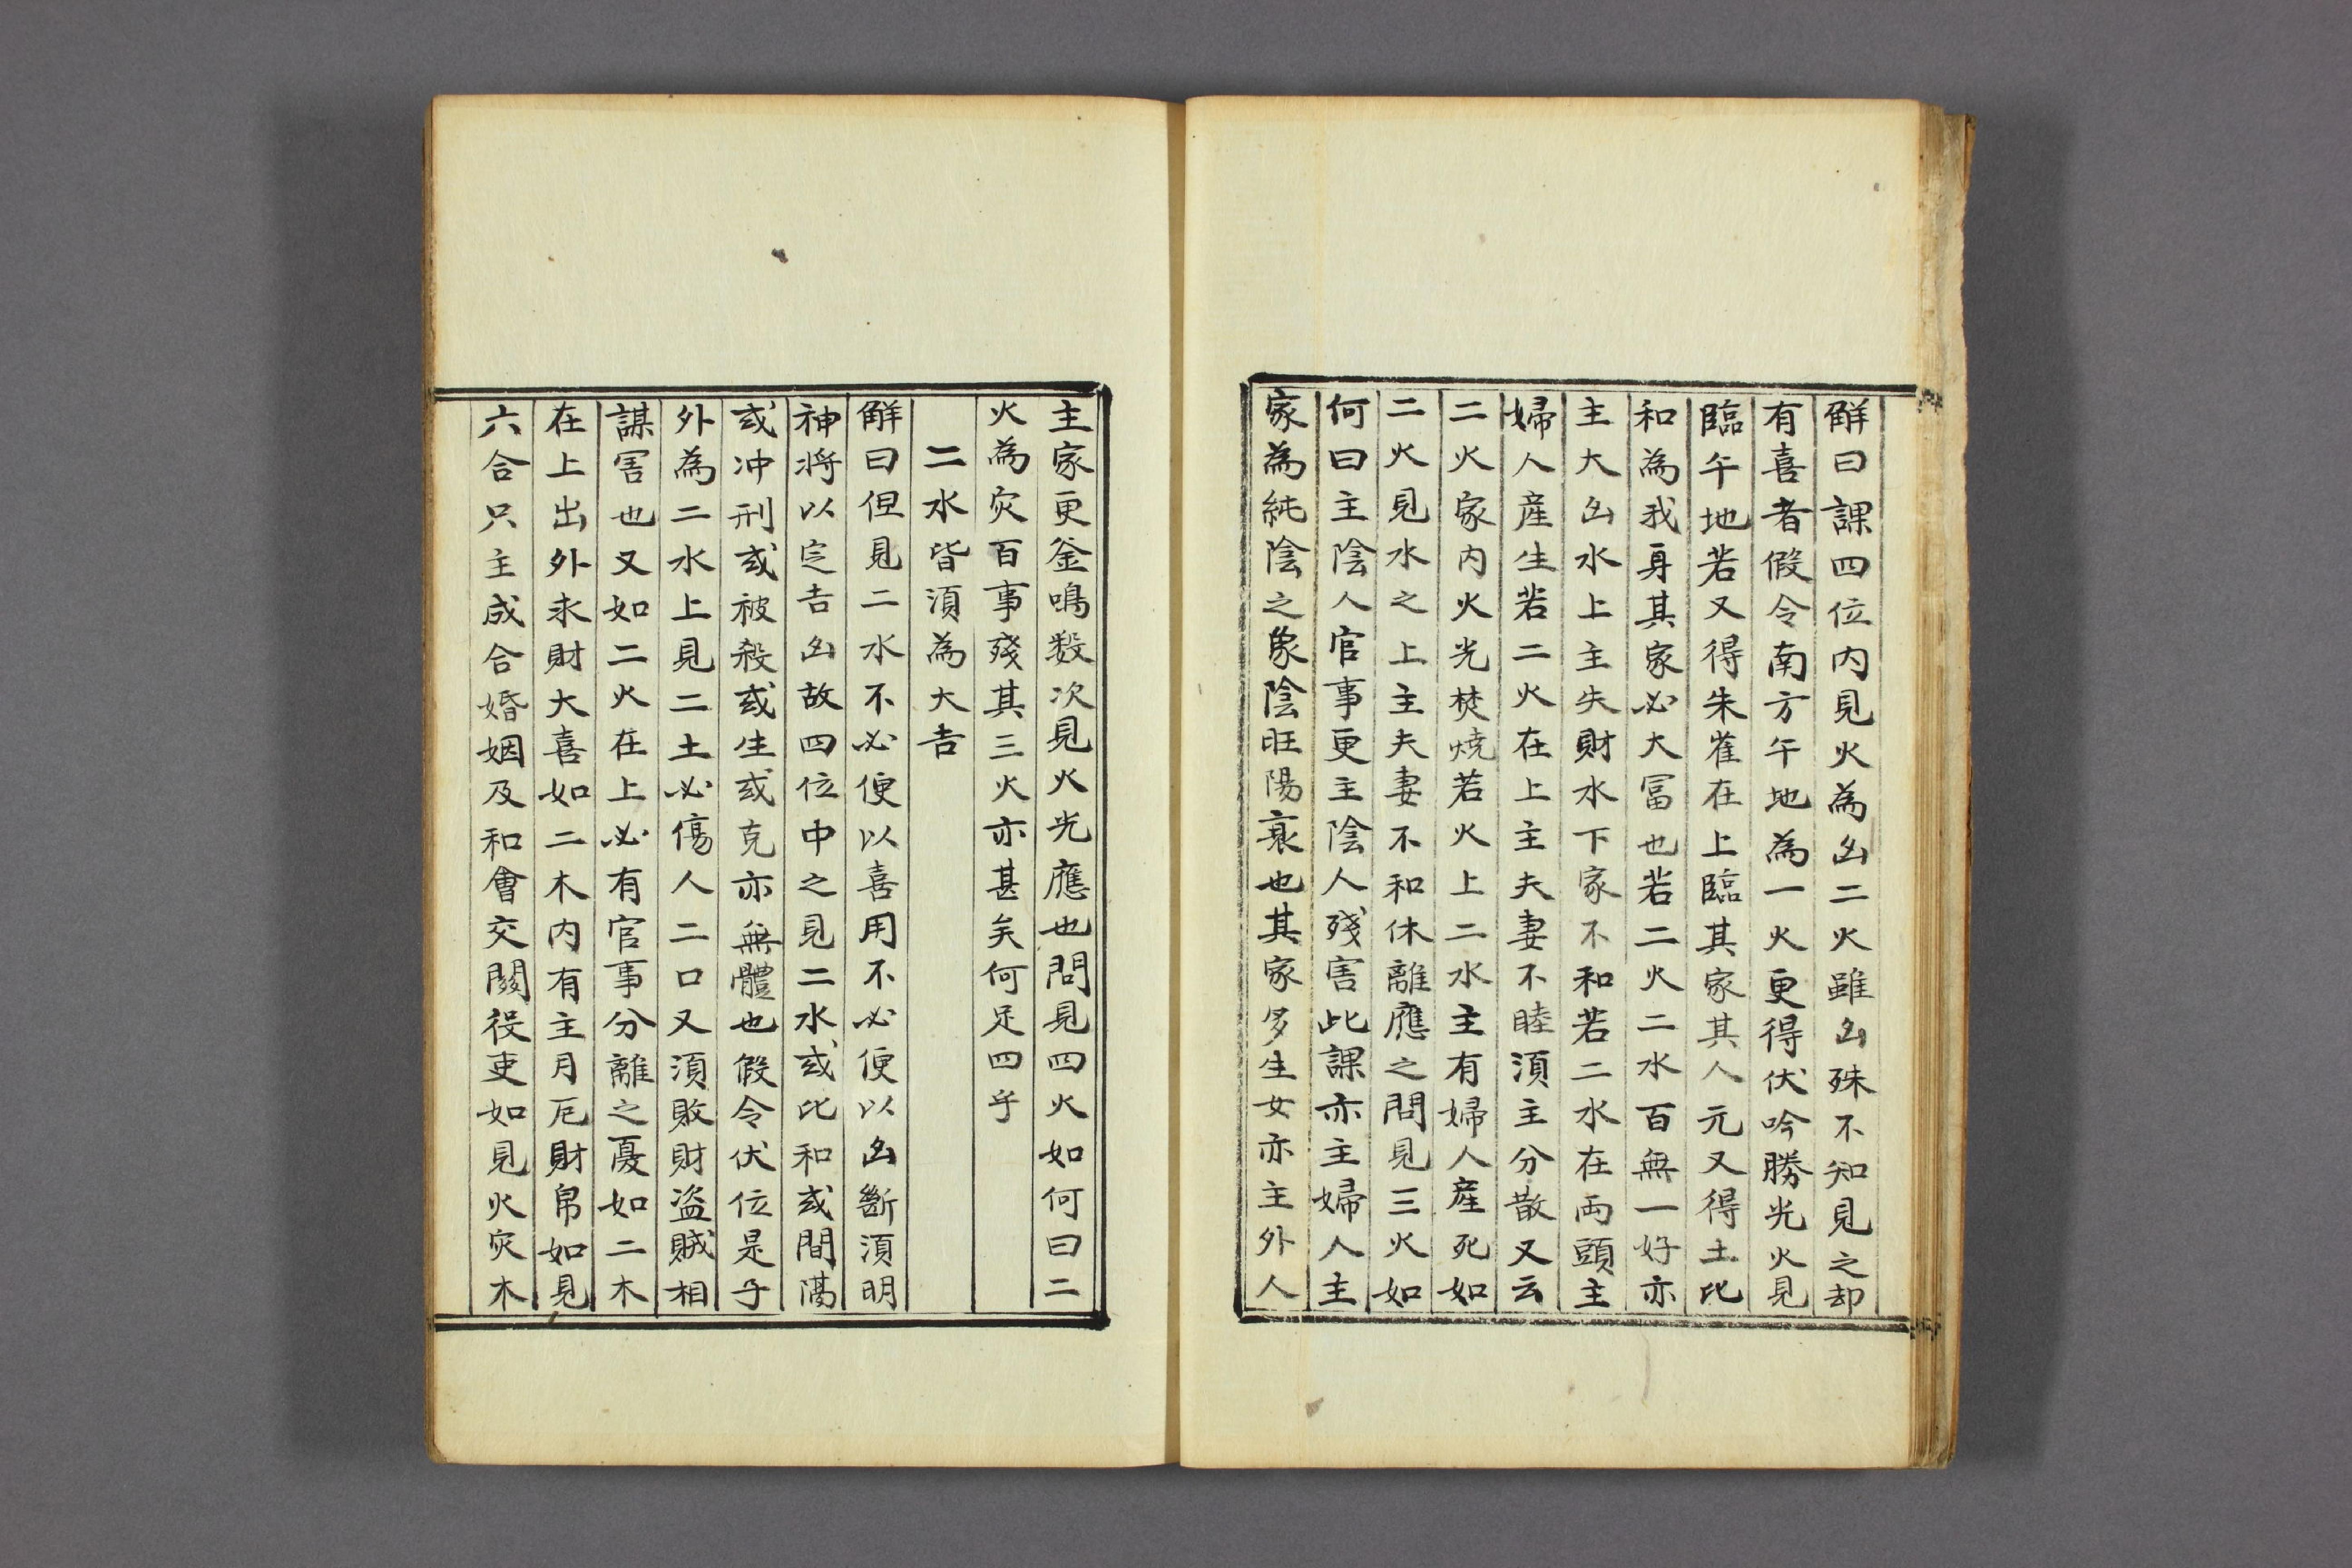 解曰課四位内見火為凶二火雖凶殊不知見之却
有喜者假令南方午地為一火更得伏吟勝光火見
臨午地若又得朱雀在上臨其家其人元又得土比
和為我身其家必大冨也若二火二水百無一好亦
主大凶水上主失財水下家不和若二水在両頭主
婦人産生若二火在上主夫妻不睦須主分散又云
二火家内火光焚燒若火上二水主有婦人産死如
二火見水之上主夫妻不和休離應之問見三火如
何曰主陰人官事更主陰人殘害此課亦主婦人主
家為純陰之象陰旺陽衰也其家多生女亦主外人
主家更釜鳴数次見火光應也問見四火如何曰二
火為灾百事殘其三火亦甚矣何足四乎
二水皆須為大吉
解曰但見二水不必便以喜用不必便以凶斷須明
神将以定吉凶故四位中之見二水或比和或間隔
或冲刑或被殺或生或克亦無體也假令伏位是子
外為二水上見二土必傷人二口又須敗財盗賊相
謀害也又如二火在上必有官事分離之憂如二木
在上出外求財大喜如二木内有主月厄財帛如見
六合只主成合婚姻及和會交関役吏如見火灾木